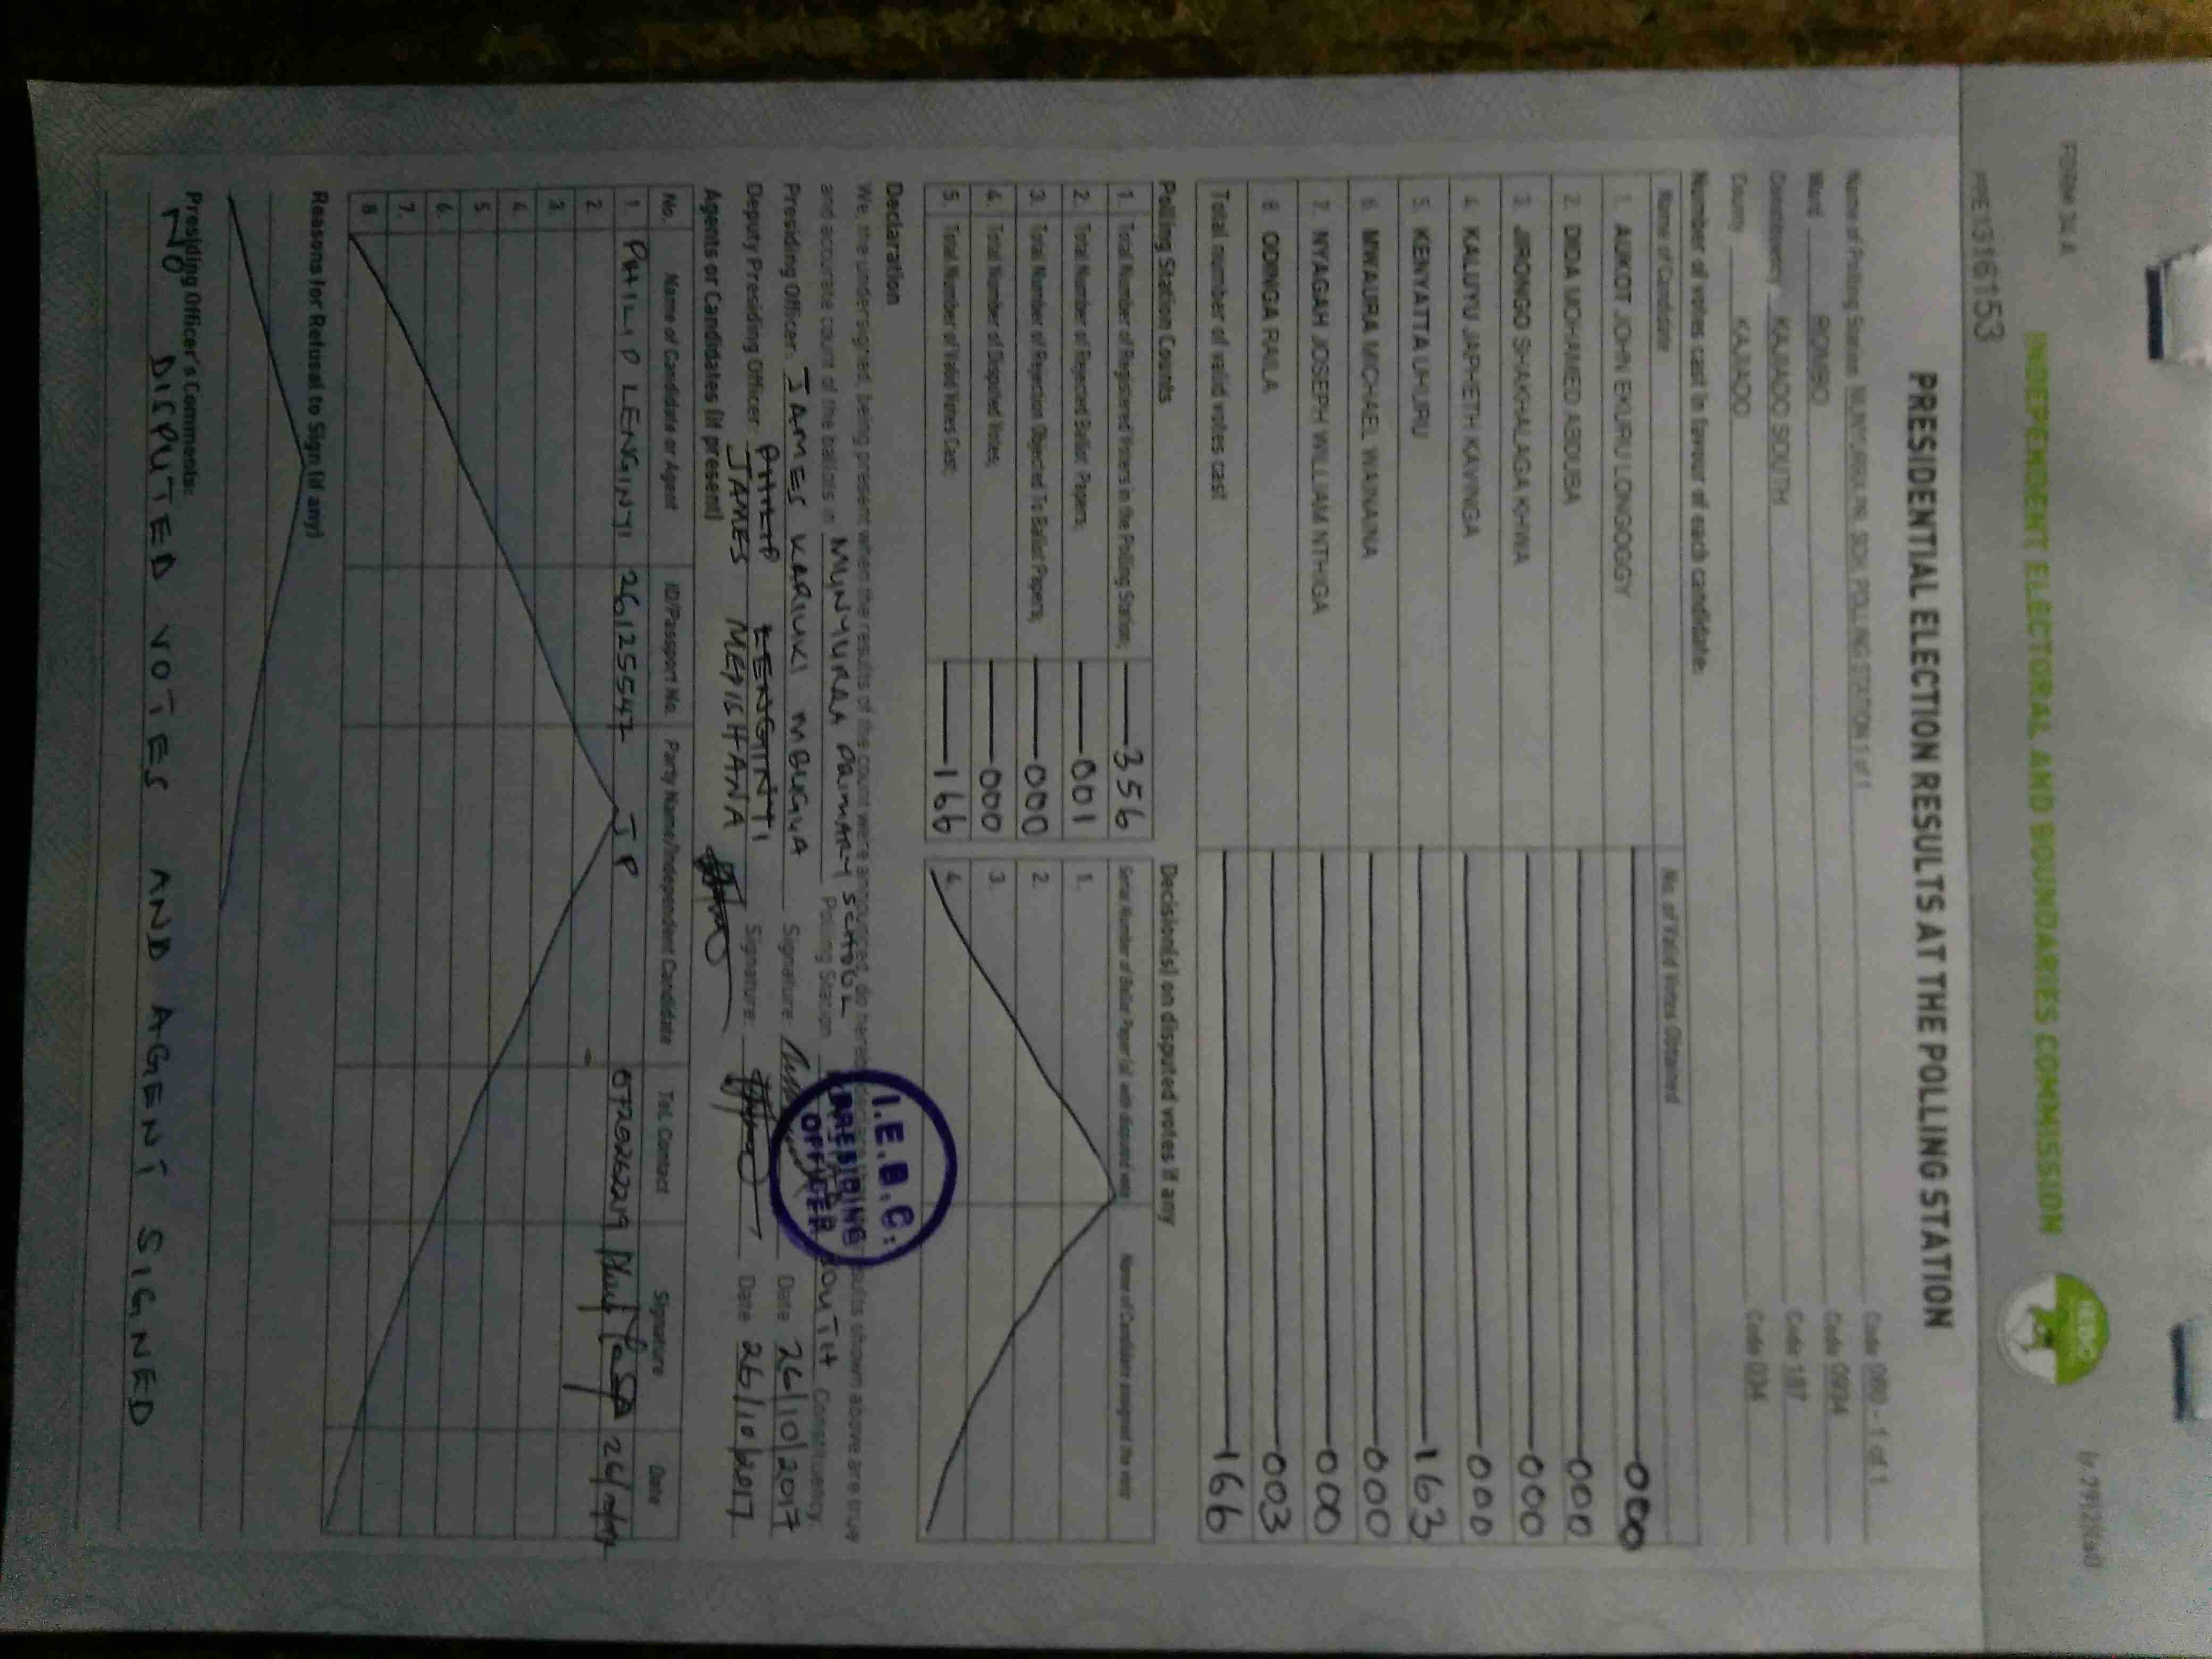 FORM 34 A
INDEPENDENT ELECTORAL AND BOUNDARIES COMMISSION
IEBC
PRESIDENTIAL ELECTION RESULTS AT THE POLLING STATION
Name of Polling Station NUNYURRA PR. SCH. POLLING STATION 1 of 1 Code 099 - 1 of 1
Ward ROMBO Code 0934
Constituency KAJIADO SOUTH Code 187
County KAJIADO Code 034
Number of votes cast in favour of each candidate:
Name of Candidate No. of Valid Votes Obtained
1. AUKOT JOHN EKURU LONGOGGY 000
2. DIDA MOHAMED ABDUBA 000
3. JIRONGO SHAKHALAGA KHWA 000
4. KALUYU JAPHETH KAVINGA 000
5. KENYATTA UHURU 163
6. MWAURA MICHAEL WAINAINA 000
7. NYAGAH JOSEPH WILLIAM NTHIGA 000
8. ODINGA RAILA 003
Total number of valid votes cast 166
Polling Station Counts Decision(s) on disputed votes if any
1. Total Number of Registered Voters in the Polling Station; 356
2. Total Number of Rejected Ballot Papers; 001
3. Total Number of Rejection Objected To Ballot Papers; 000
4. Total Number of Disputed Votes; 000
5. Total Number of Valid Votes Cast; 166
Serial Number of Ballot Paper (s) with disputed vote Name of Candidate assigned the vote
1.
2.
3.
4.
Declaration
We, the undersigned, being present when the results of the count were announced, do hereby results shown above are true
and accurate count of the ballots in MUNYURA PRIMARY SCHOOL Polling Station SOUTH Constituency.
Presiding Officer: JAMES KARIUKI MBUGUA Signature: Date 26/10/2017
Deputy Presiding Officer: PHILIP LENGINYI Signature: Date 26/10/2017
JAMES MEPISHANA
I.E.B.C:
PRESIDING
OFFICER
Agents or Candidates (if present)
No. Name of Candidate or Agent ID/Passport No. Party Name/Independent Candidate Tel. Contact Signature Date
1. PHILIP LENGINYI 26125547 JP 0720262219
2.
3.
4.
5.
6.
7.
8
Reasons for Refusal to Sign (if any)
Presiding Officer's Comments:
NO DISPUTED VOTES AND AGENT SIGNED